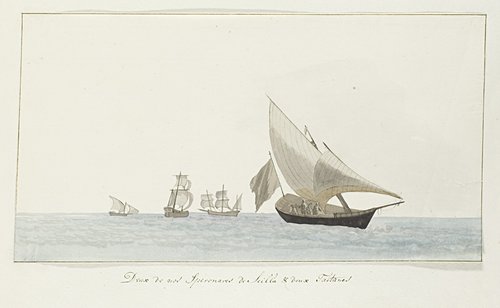 Deux de nos Speronares de Scilla & deux Tartanes